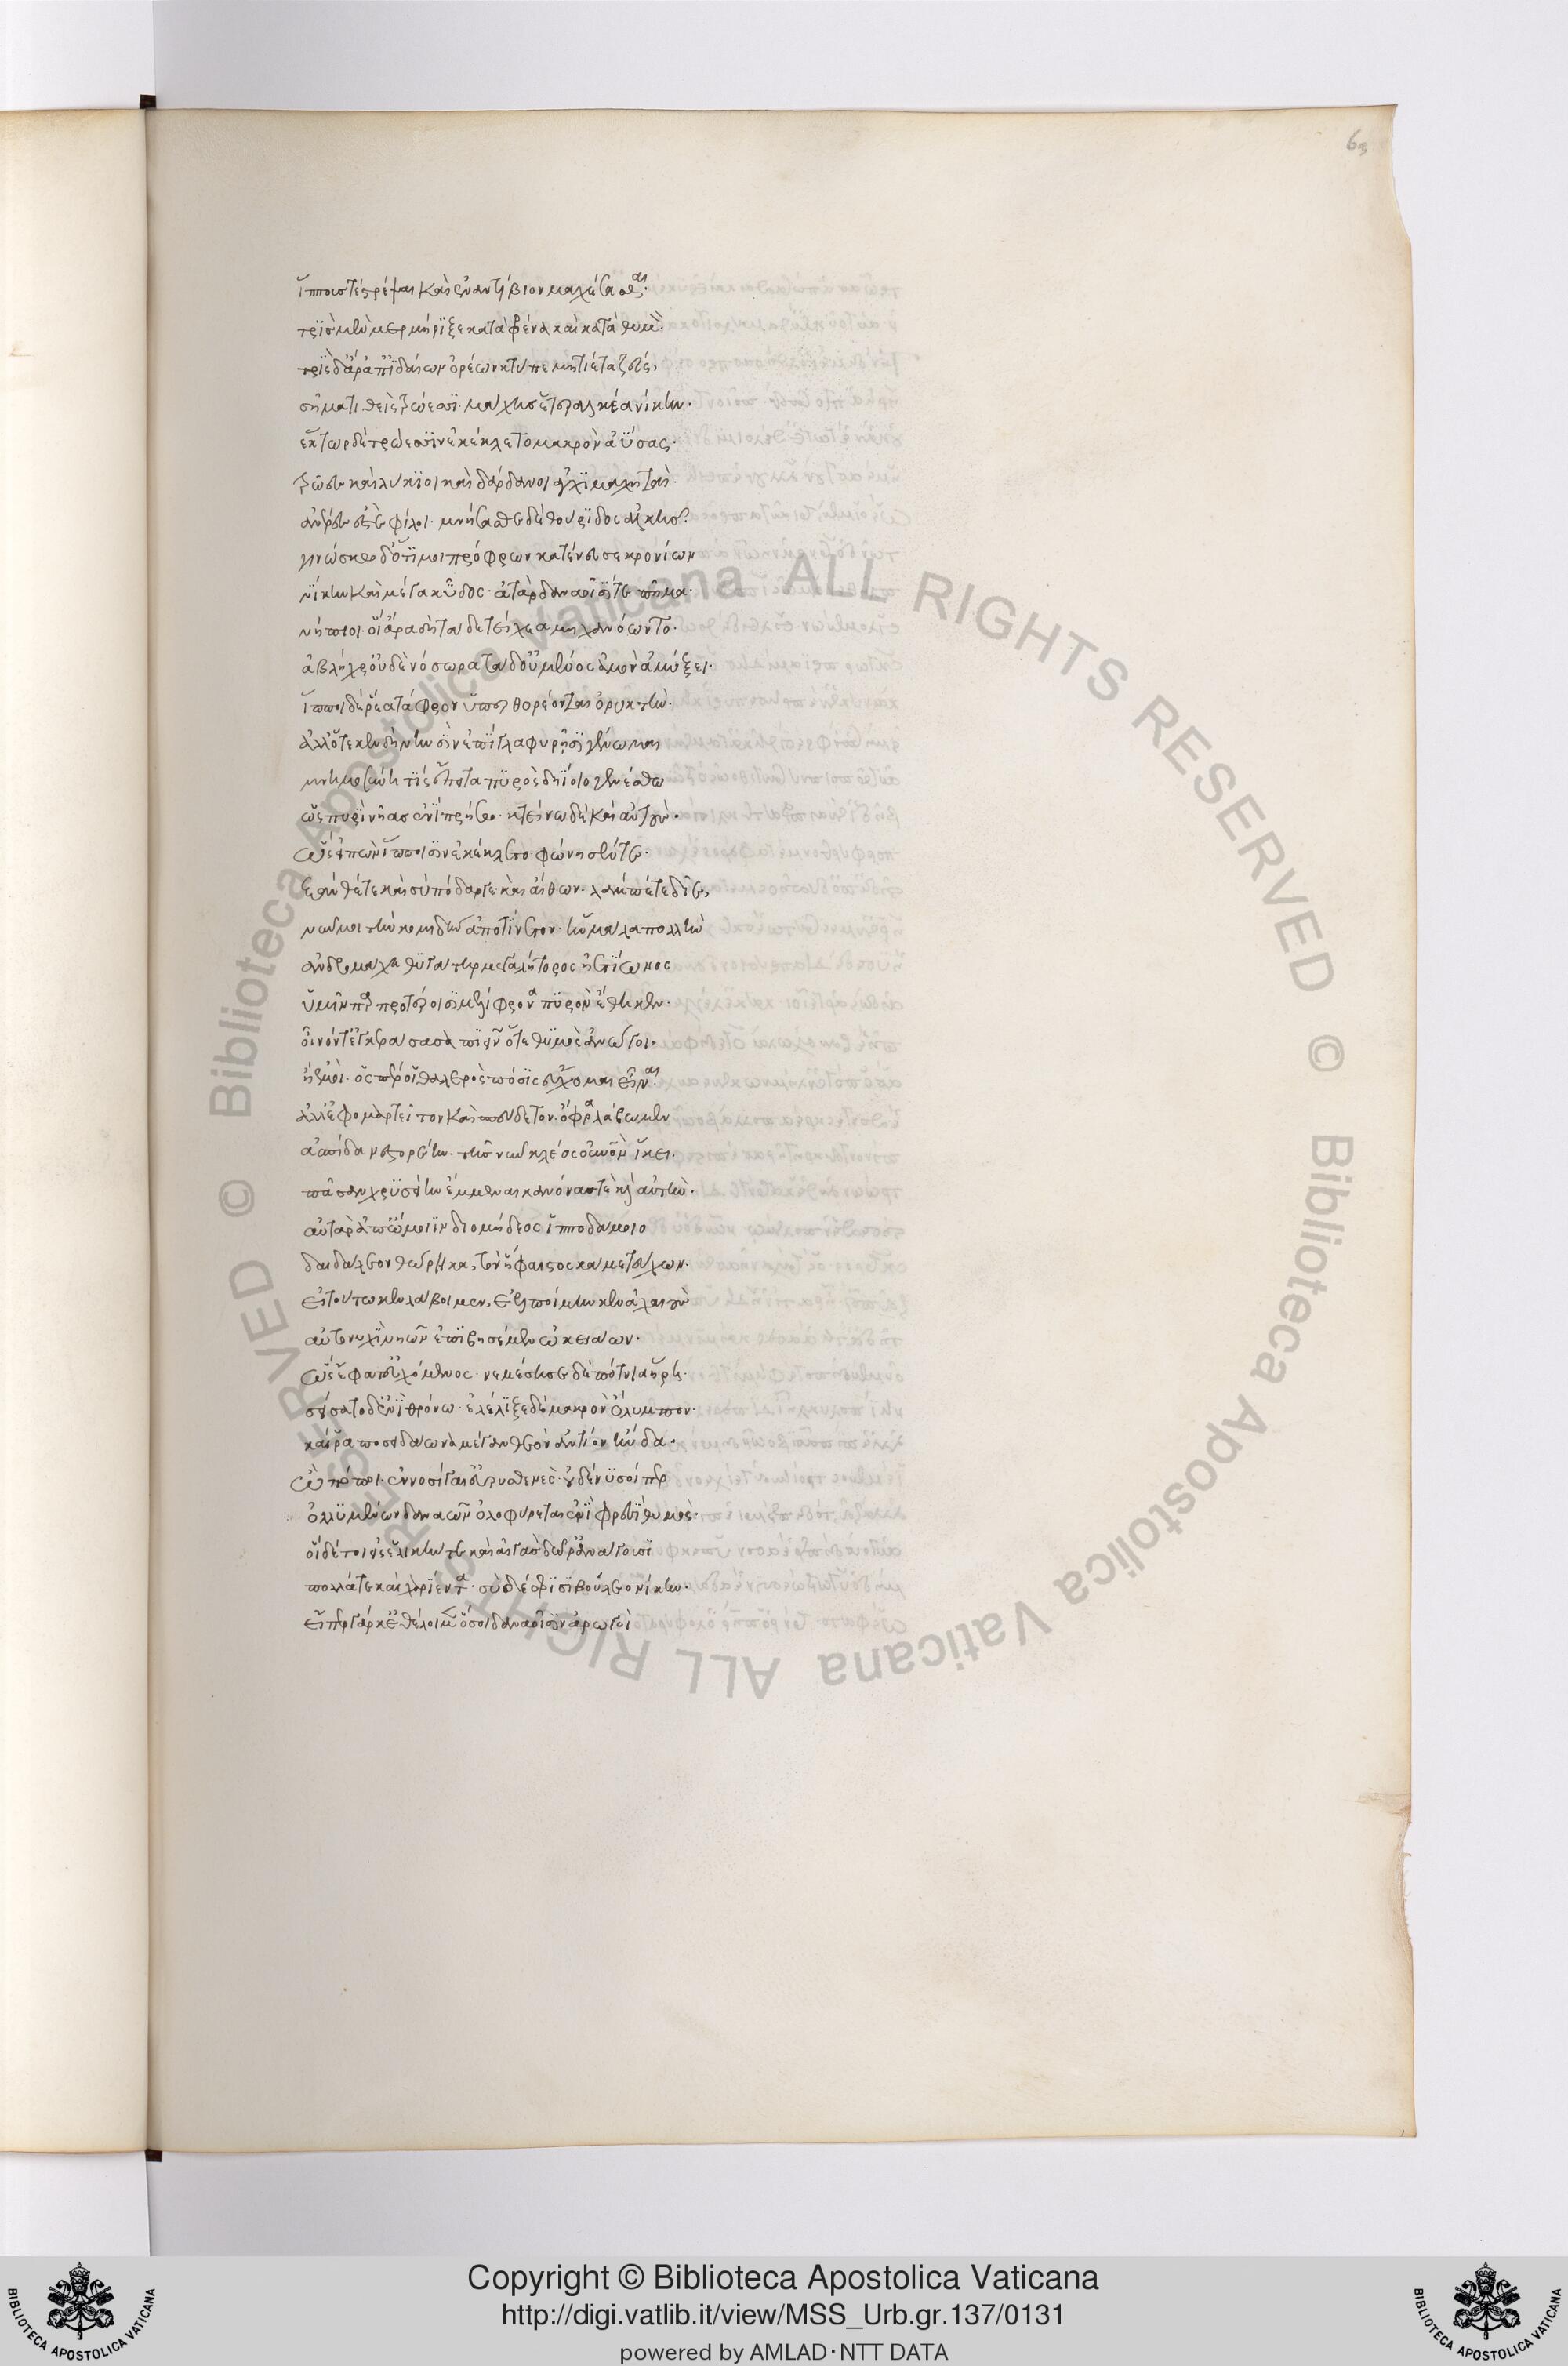 63
ἵππους τε στρέψαι καὶ ἐναντίβιον μαχέσασθαι·
τρὶς μὲν μερμήριξε κατὰ φρένα καὶ κατὰ θυμὸν·
τρὶς δ' ἄρ' ἀπ' ἰδαίων ὀρέων κτύπε μητίετα ζεύς,
σῆμα τιθεὶς τρώεσσι· μάχης ἑτεραλκέα νίκην·
ἕκτωρ δὲ τρώεσσιν ἐκέκλετο μακρὸν ἀΰσας·
τρῶες καὶ λύκιοι καὶ δάρδανοι ἀγχιμαχηταὶ·
ἀνέρες ἐστὲ φίλοι· μνήσασθε δὲ θούριδος ἀλκῆς·
γινώσκω δ' ὅτι μοι πρόφρων κατένευσε κρονίων
νίκην καὶ μέγα κῦδος· ἀτὰρ δαναοῖσί γε πῆμα·
νήπιοι· οἳ ἄρα δὴ τάδε τείχεα μηχανόωντο·
ἀβλήχρ' οὐδενόσωρα τὰ δ' οὐ μένος ἁμὸν ἀμύξει·
ἵπποι δὲ ῥέα τάφρον ὑπερθορέονται ὀρυκτὴν·
ἀλλ' ὅτε κεν δὴ νηυσὶν ἐπὶ γλαφυρῇσι γένωμαι
μνημοσύνη τις ἔπειτα πυρὸς δηΐοιο γενέσθω
ὡς πυρὶ νῆας ἐνιπρήσω· κτείνω δὲ καὶ αὐτοὺς·
ὣς εἰπὼν ἵπποισιν ἐκέκλετο φώνησέν τε·
ξάνθέ τε καὶ σὺ πόδαργε· καὶ αἴθων· λάμπέ τε δῖε,
νῦν μοι τὴν κομιδὴν ἀποτίνετον· ἣν μάλα πολλὴν
ἀνδρομάχη θυγάτηρ μεγαλήτορος ἠετίωνος
ὑμῖν παρ προτέροισι μελίφρονα πυρὸν ἔθηκεν·
οἶνόν τ' ἐγκεράσασα πιεῖν ὅτε θυμὸς ἀνώγοι·
ἢ ἐμοὶ· ὅς πέρ οἱ θαλερὸς πόσις εὔχομαι εἶναι·
ἀλλ' ἐφομαρτεῖτον καὶ σπεύδετον· ὄφρα λάβωμεν
ἀσπίδα νεστορέην· τῆς νῦν κλέος οὐρανὸν ἵκει·
πᾶσαν χρυσείην ἔμμεναι κανόνας τε καὶ αὐτὴν·
αὐτὰρ ἀπ' ὤμοιϊν διομήδεος ἱπποδάμοιο
δαιδάλεον θώρηκα, τὸν ἥφαιστος κάμε τεύχων·
εἰ τούτω κε λάβοιμεν, ἐελποίμην κεν ἀχαιοὺς
αὐτονυχὶ νηῶν ἐπιβησέμεν ὠκειάων·
ὣς ἔφατ' εὐχόμενος· νεμέσησε δὲ πότνια ἥρη·
σείσατο δ' ἐνὶ θρόνω· ἐλέλιξε δὲ μακρὸν ὄλυμπον·
καί ῥα ποσειδάωνα μέγαν θεὸν ἀντίον ηὔδα·
ὢ πόποι· ἐννοσίγαι' εὐρυσθενὲς· οὐδέ νυ σοί περ
ὀλλυμένων δαναῶν ὀλοφύρεται ἐν φρεσὶ θυμὸς·
οἱ δέ τοι εἰς ἑλίκην τε καὶ αἰγὰς δῶρ' ἀνάγουσι
πολλά τε καὶ χαρίεντα· σὺ δέ σφισι βούλεο νίκην·
εἴ περ γάρ κ' ἐθέλοιμεν ὅσοι δαναοῖσιν ἀρωγοὶ
Copyright © Biblioteca Apostolica Vaticana
http://digi.vatlib.it/view/MSS_Urb.gr.137/0131
powered by AMLAD·NTT DATA